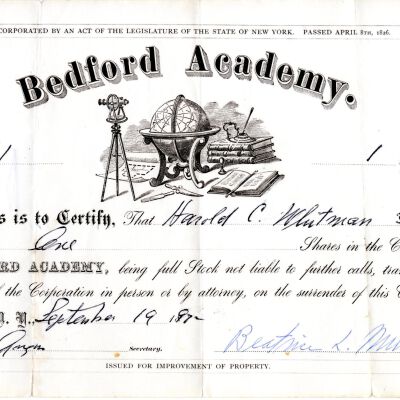 CORPORATED BY AN ACT OF THE LEGISLATURE OF THE STATE OF NEW YORK. PASSED APRIL 8TH, 1826.
Bedford Academy.
1 1
s is to Certify, That Harold C. Whitman
One Shares in the C
RD ACADEMY, being full Stock not liable to further calls, tra
f the Corporation in person or by attorney, on the surrender of this C
Y., September 19
Secretary. Beatrice L.
ISSUED FOR IMPROVEMENT OF PROPERTY.